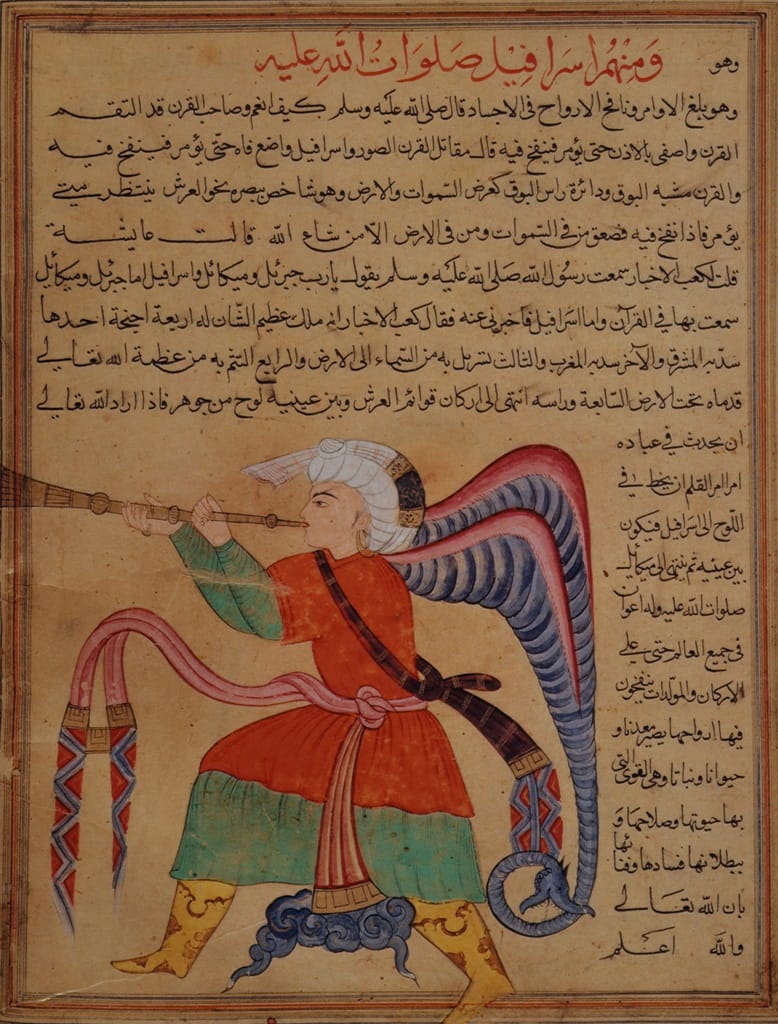 ومنهم اسرافيل صلوات الله عليه
وهو
وهو يبلغ الاوامر ونافخ الارواح في الاجساد قال صلى الله عليه وسلم كيف انعم وصاحب القرن قد التقم
القرن واصغى بالاذن حتى يؤمر فينفخ فيه قال مقاتل القرن الصور واسرافيل واضع فاه حتى يؤمر فينفخ فيه
والقرن مشبه البوق ودائرة راس البوق كعرض السموات والارض وهو شاخص ببصره نحو العرش ينتظر متى
يؤمر فاذا نفخ فيه فصعق من في السموات ومن في الارض الا من شاء الله قالت عايشة
قلت لكعب الاخبار سمعت رسول الله صلى الله عليه وسلم يقول يا رب جبرئل وميكائل واسرافيل اما جبرئل وميكائل
سمعت بها في القرآن واما اسرافيل فاخبرني عنه فقال كعب الاخبار انه ملك عظيم الشان له اربعة اجنحة احدها
سد به المشرق والاخر سد به المغرب والثالث تسربل به من السماء الى الارض والرابع التثم به من عظمة الله تعالى
قدماه تحت الارض السابعة وراسه انتهى الى اركان قوائم العرش وبين عينيه لوح من جوهر فاذا اراد الله تعالى
ان يحدث في عباده
امرا امر القلم ان يخط في
اللوح الى اسرافيل فيكون
بين عينيه ثم ينتهى الى ميكائل
صلوات الله عليه وله اعوان
في جميع العالم حتى على
الاركان والمولدات ينفخون
فيها ارواحها يصير معدنا و
حيوانا ونباتا وهي القوى التي
بها حيوتها وصلاحها و
ببطلانها فسادها وفنائها
بان الله تعالى
والله اعلم